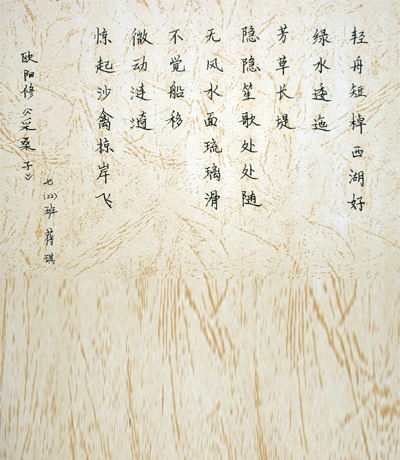 轻舟短棹西湖好
绿水逶迤
芳草长堤
隐隐笙歌处处随
无风水面琉璃滑
不觉船移
微动涟漪
惊起沙禽掠岸飞
欧阳修《采桑子》
七(22)班 蒋琪